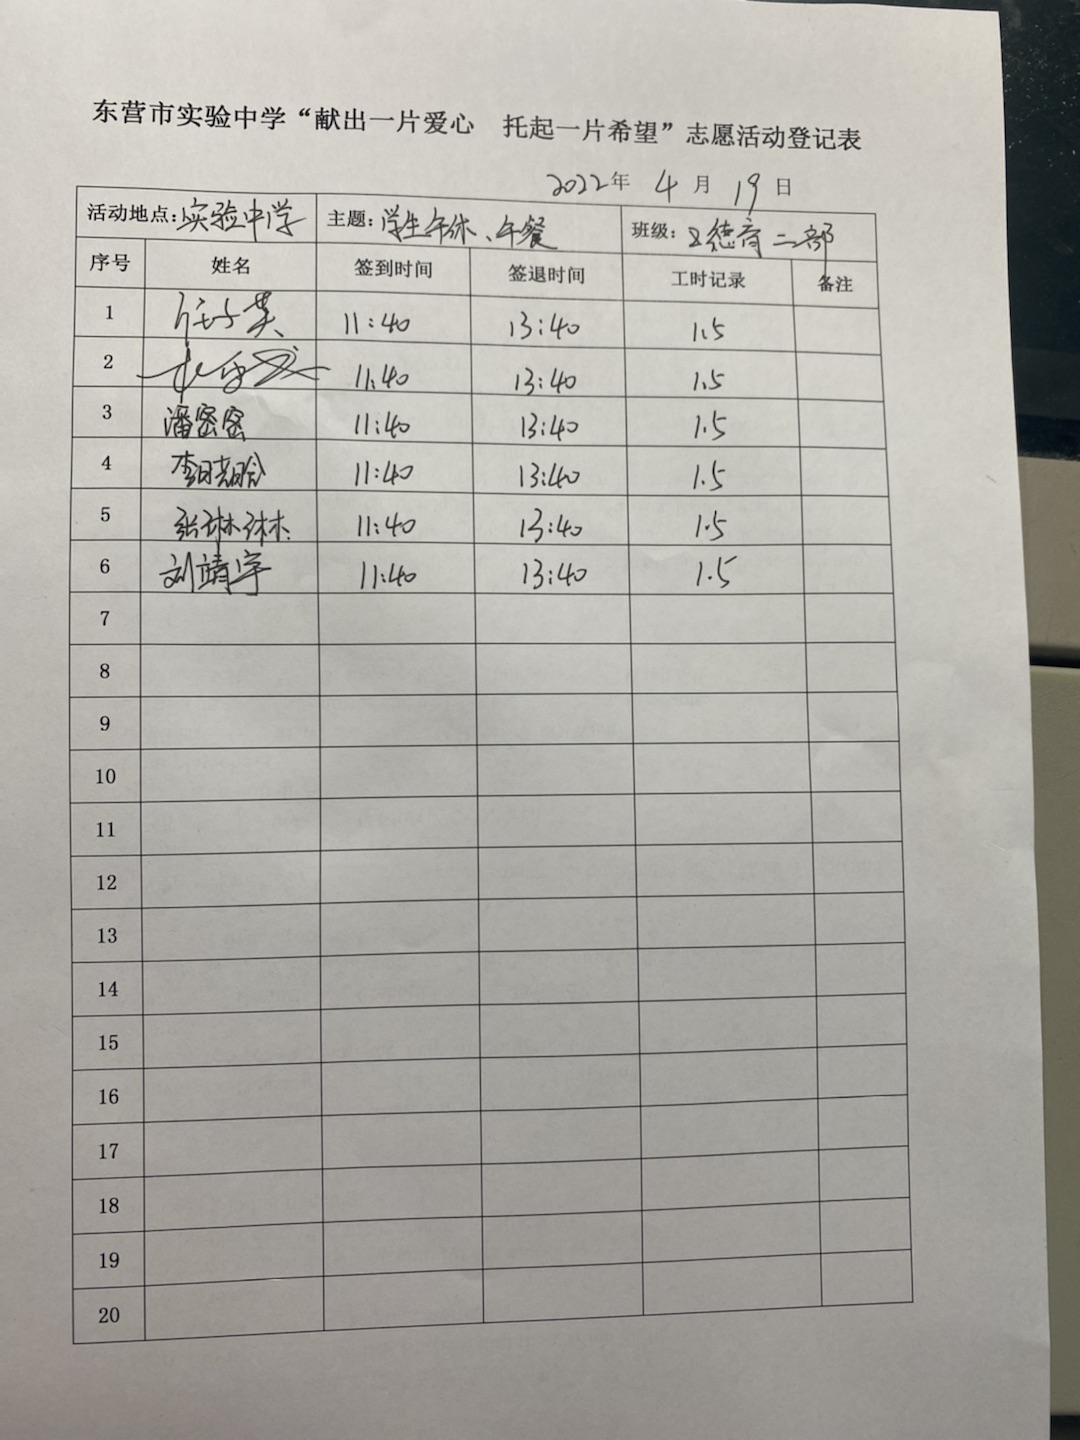 东营市实验中学“献出一片爱心 托起一片希望”志愿活动登记表
2022年 4 月 19 日
活动地点:实验中学 主题:学生午休、午餐 班级: 德育二部
序号 姓名 签到时间 签退时间 工时记录 备注
1 英 11:40 13:40 1.5
2 11:40 13:40 1.5
3 潘密密 11:40 13:40 1.5
4 李晓晗 11:40 13:40 1.5
5 张琳琳 11:40 13:40 1.5
6 刘靖宇 11:40 13:40 1.5
7
8
9
10
11
12
13
14
15
16
17
18
19
20